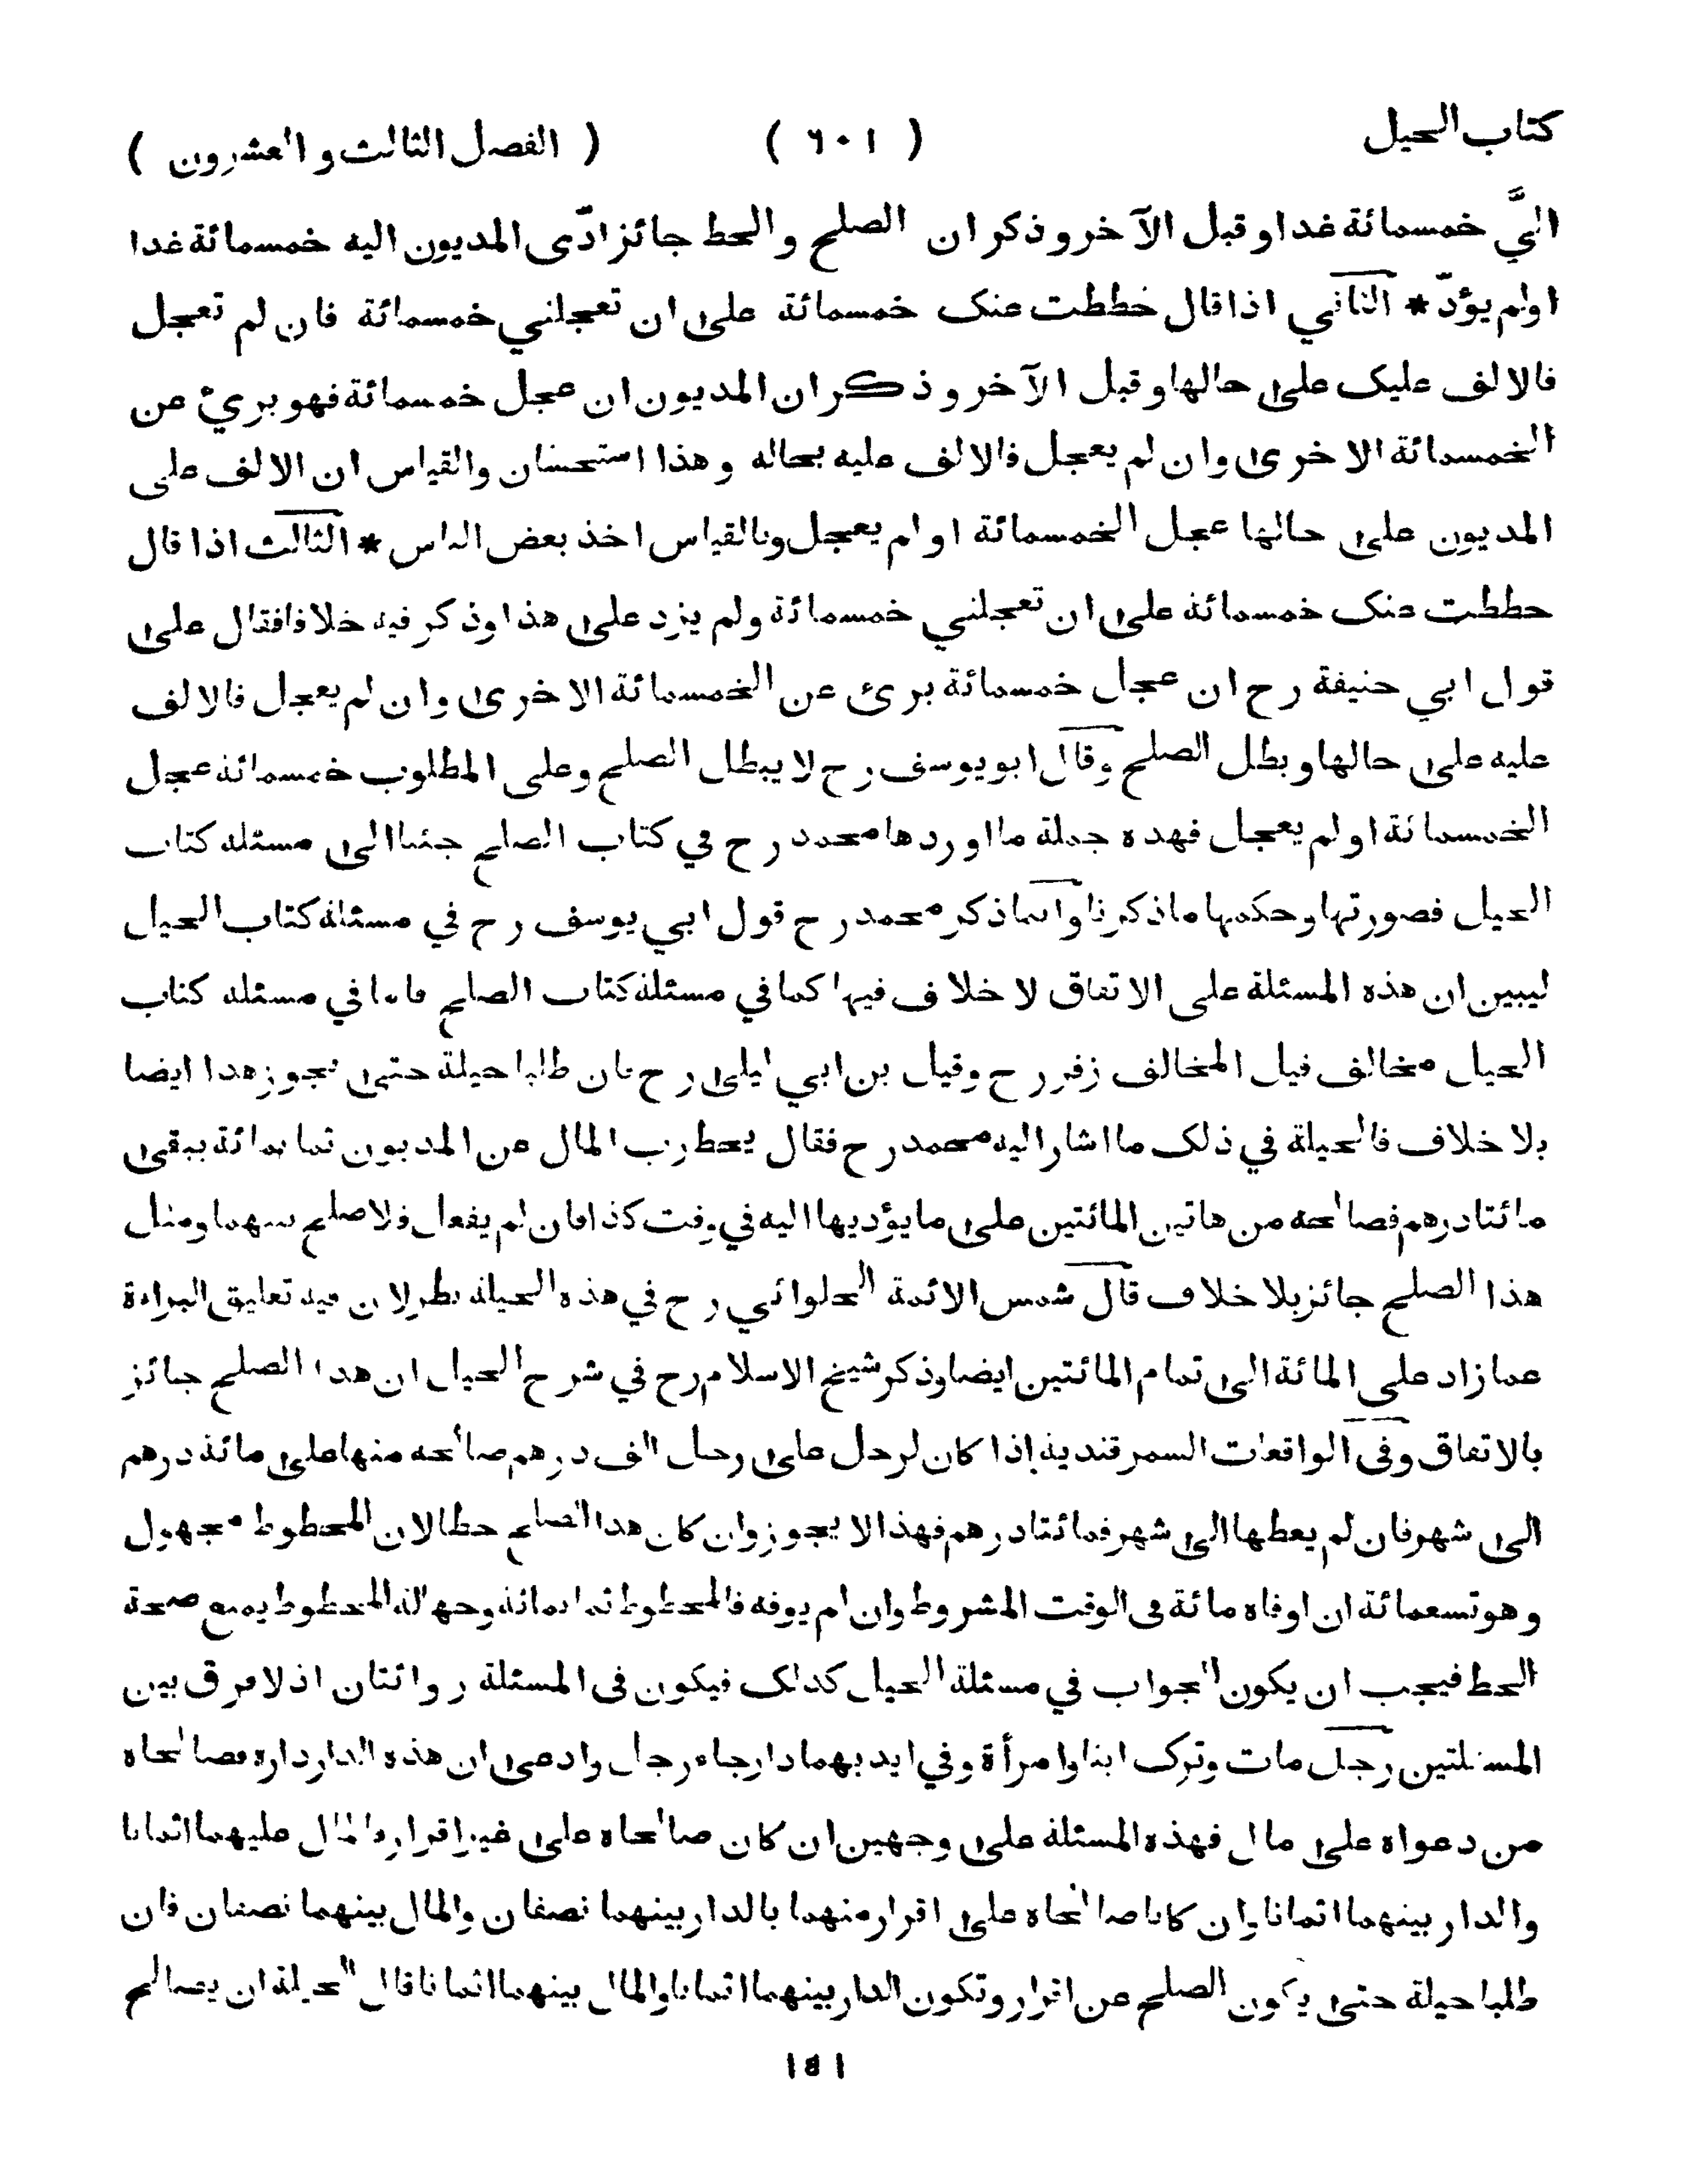 كتاب الحيل ( ٦٠١ ) ( الفصل الثالث والعشرون )
اليَّ خمسمائة غدا وقبل الآخر وذكر ان الصلح والحط جائز ادّى المديون اليه خمسمائة غدا
اولم يؤدّ * الثاني اذا قال حططت عنك خمسمائة على ان تعجلني خمسمائة فان لم تعجل
فالالف عليك على حالها وقبل الآخر وذكر ان المديون ان عجل خمسمائة فهو بريء عن
الخمسمائة الاخرى وان لم يعجل فالالف عليه بحاله وهذا استحسان والقياس ان الالف على
المديون على حالها عجل الخمسمائة او لم يعجل وبالقياس اخذ بعض الناس * الثالث اذا قال
حططت عنك خمسمائة على ان تعجلني خمسمائة ولم يزد على هذا وذكر فيه خلافا فقال على
قول ابي حنيفة رح ان عجل خمسمائة برئ عن الخمسمائة الاخرى وان لم يعجل فالالف
عليه على حالها وبطل الصلح وقال ابو يوسف رح لا يبطل الصلح وعلى المطلوب خمسمائة عجل
الخمسمائة او لم يعجل فهده جملة ما اوردها محمد رح في كتاب الصلح جئنا الى مسئلة كتاب
الحيل فصورتها وحكمها ما ذكرنا وانما ذكر محمد رح قول ابي يوسف رح في مسئلة كتاب الحيل
ليبين ان هذه المسئلة على الاتفاق لا خلاف فيها كما في مسئلة كتاب الصلح فاما في مسئلة كتاب
الحيل مخالف فيل المخالف زفر رح وقيل بن ابي ليلى رح فان طلبا حيلة حتى يجوز هدا ايضا
بلا خلاف فالحيلة في ذلك ما اشار اليه محمد رح فقال يحط رب المال عن المديون ثمانمائة يبقى
مائتا درهم فصالحه من هاتين المائتين على ما يؤديها اليه في وقت كذا فان لم يفعل فلا صلح بينهما ومثل
هذا الصلح جائز بلا خلاف قال شمس الائمة الحلوائي رح في هذه الحيلة نظر لان فيه تعليق البراءة
عما زاد على المائة الى تمام المائتين ايضا وذكر شيخ الاسلام رح في شرح الحيل ان هدا الصلح جائز
بالاتفاق وفى الواقعات السمرقندية إذا كان لرجل على رجل الف درهم صالحه منها على مائة درهم
الى شهر فان لم يعطها الى شهر فمائتا درهم فهذا لا يجوز وان كان هدا الصلح حطا لان المحطوط مجهول
وهو تسعمائة ان اوفاه مائة فى الوقت المشروط وان لم يوفه فالمحطوط ثمانمائة وجهالة المحطوط يمنع صحة
الحط فيجب ان يكون الجواب في مسئلة الحيل كدلك فيكون فى المسئلة روائتان اذ لا فرق بين
المسئلتين رجل مات وترك ابنا وامرأة وفي ايديهما دار جاء رجل وادعى ان هذه الدار داره فصالحاه
من دعواه على مال فهذه المسئلة على وجهين ان كان صالحاه على غير اقرار فالمال عليهما اثمانا
والدار بينهما اثمانا وان كانا صالحاه على اقرار منهما بالدار بينهما نصفان والمال بينهما نصفان فان
طلبا حيلة حتى يكون الصلح عن اقرار وتكون الدار بينهما اثمانا والمال بينهما اثمانا قال الحيلة ان يصالح
١٥١